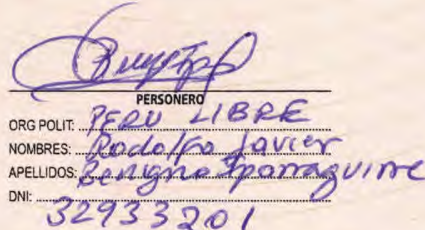 PERSONERO
ORG POLIT: PERU LIBRE
NOMBRES: Rodolfo Javier
APELLIDOS: Benigno Iparraguirre
DNI: 32933201